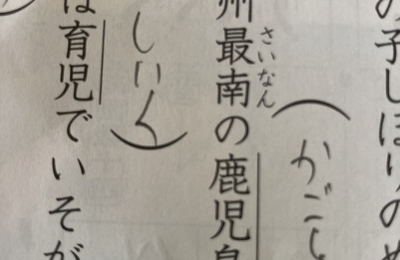 しぼりの
（かごし
さいなん
州最南の鹿児島
しいく）
は育児でいそが